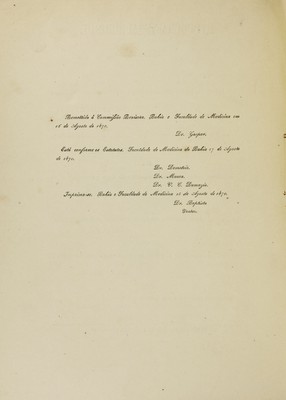 Remettida á Commissão Revisora. Bahia e Faculdade de Medicina em
de Agosto de 187
Dr. Gaspar.
Está conforme os Estatutos. Faculdade de Medicina da Bahia 27 de Agosto
de 187
Dr.
Dr. Moura.
Dr. V. C. Damazio.
Imprima-se. Bahia e Faculdade de Medicina de Agosto de 187
Dr. Baptista